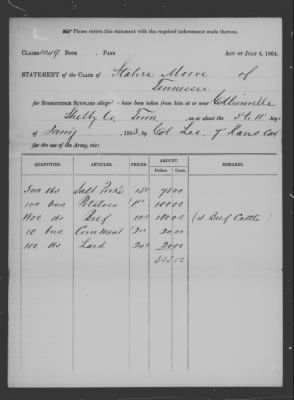 Please return this statement with the required indorsement made thereon.
CLAIM Book Page Act of July 4, 1864.
STATEMENT of the CLAIM of Statira Moore of
Tennessee
for SUBSISTENCE SUPPLIES alleged have been taken from him at or near Collierville
Shelby Co. Tenn on or about the 5th day
of 1863, by Col Lee. 7" Kans Cav
for the use of the Army, viz:
QUANTITIES. ARTICLES. PRICES. AMOUNT. REMARKS.
500 lbs Salt Pork 15c 75 00
100 bus Potatoes 1 00 100 00
lbs Beef 10c (4 Beef Cattle)
10 bus Corn Meal 2 00 20 00
100 lbs Lard 20c 20 00